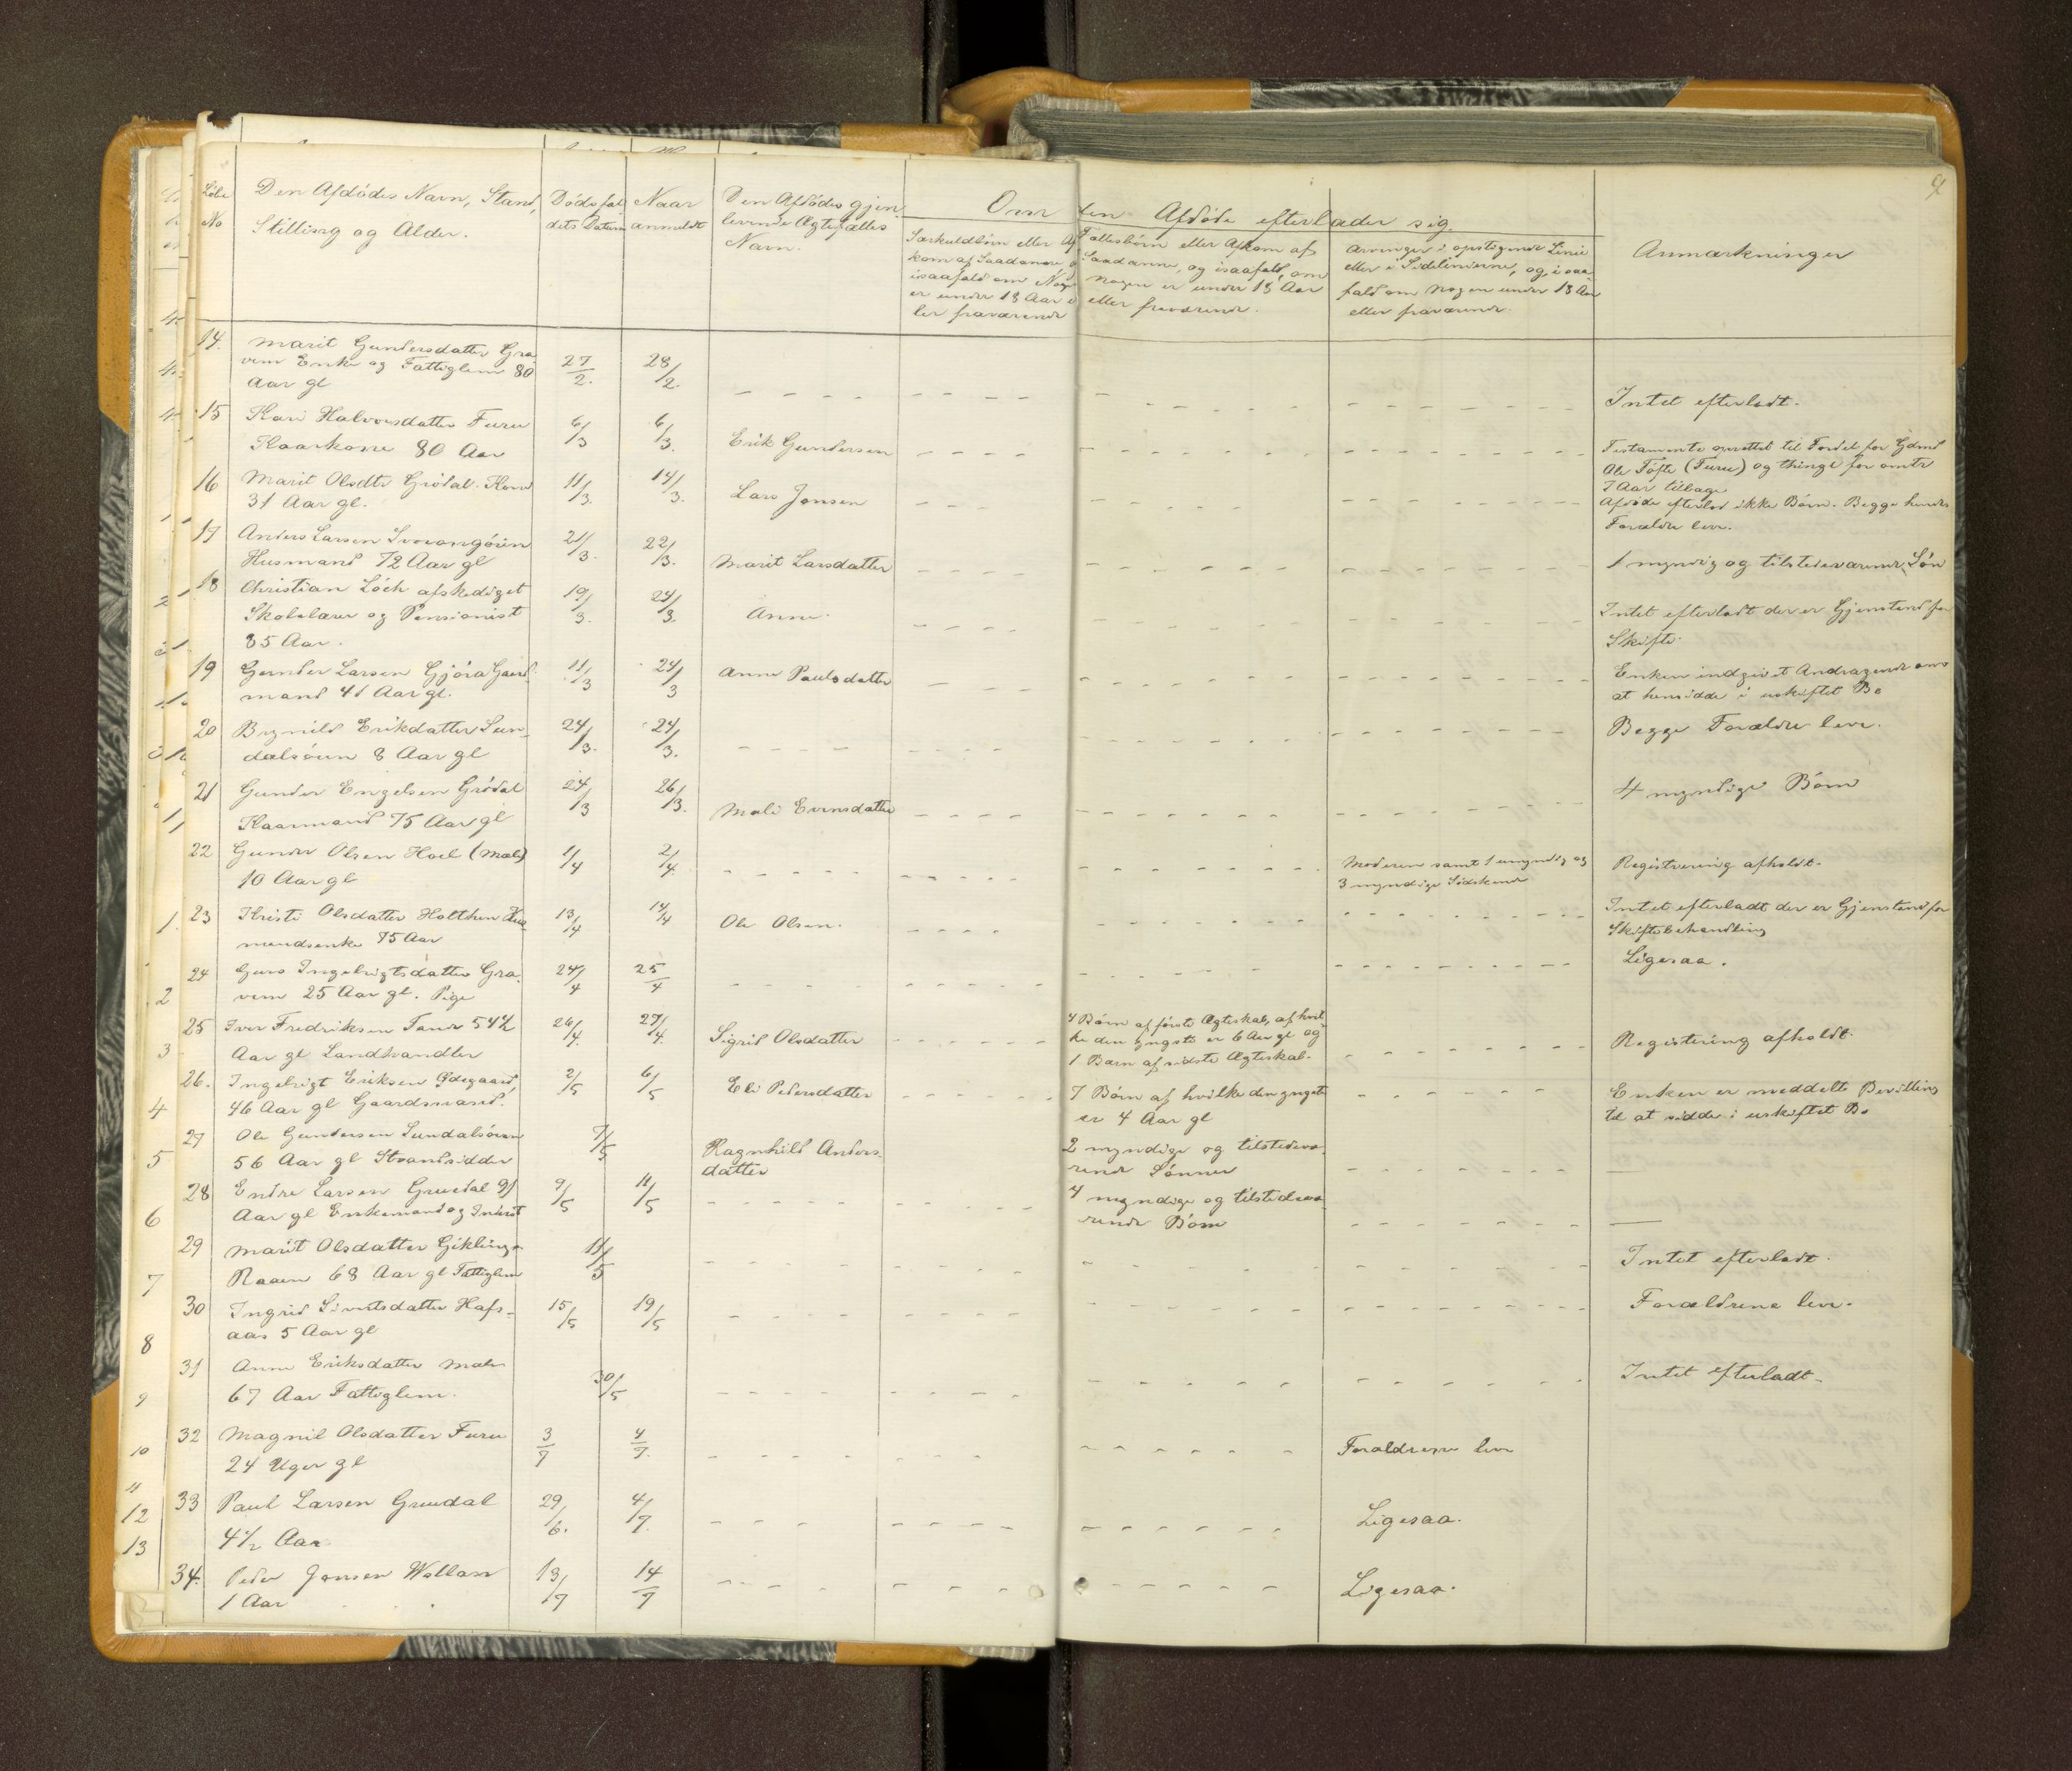 Løbe No
Den Afdødes Navn, Stand,
Stilling og Alder.
Dødsfal
dets Datum
Naar
anmeldt
Den Afdødes gjen
levende Ægtefælles
Navn.
Om den Afdøde efterlader sig.
Særkuldbørn eller Af
kom af Saadanne o
isaafald om Noge
er under 18 Aar e
ler fraværende
Fællesbörn eller Afkom af
Saadanne, og isaafald, om
nogen er under 18 Aar
eller fraværende.
Arvinger i opstigende Linie
eller i Sidelinierne, og i saa-
fald om nogen under 18 Aar
eller fraværende.
Anmærkninger
14. Marit Gundersdatter Gra
vem Enke og Fattiglem 80
Aar gl
27/2. 28/2.
Intet efterladt.
15 Kari Halvorsdatter Furu
Kaarkone 80 Aar
6/3 6/3. Erik Gundersen
Testamente oprettet til Fordel for Gdmd
Ole Tofte (Furu) og thingl for omtr
7 Aar tilbage
16 Marit Olsdtr Grödal. Kone
31 Aar gl.
11/3. 14/3. Lars Jonsen
Afdøde efterlod ikke Börn. Begge hendes
Forældre lever.
17 Anders Larsen
Husmand 72 Aar gl
21/3. 22/3. Marit Larsdatter
1 myndig og tilstedeværende Sön
18 Christian Lóch afskediget
Skolelærer og Pensionist
85 Aar.
19/3. 24/3. Anne
Intet efterladt der er Gjenstand for
Skifte.
19 Gunder Larsen Gjöra Gaard-
mand 41 Aar gl.
11/3 24/3 Anne Paulsdatter
Enken indgivet Andragende om
at hensidde i uskiftet Bo
20 Brynild Erikdatter Sun-
dalsören 8 Aar gl
24/3. 24/3.
Begge Forældre lever.
21 Gunder Engelsen Grödal
Kaarmand 75 Aar gl
24/3 26/3. Mali Evensdatter
4 myndige Börn
22 Gunder Olsen Hoel (Male)
10 Aar gl
1/4 2/4.
Moderen samt 1 umyndig og
3 myndige Södskende
Registrering afholdt.
23 Kristi Olsdatter Holthen Hus
mandsenke 75 Aar
13/4 14/4 Ole Olsen.
Intet efterladt der er Gjenstand for
Skiftebehandling
24 Guro Ingebrigtsdatter Gra
vem 25 Aar gl. Pige
24/4 25/4
Ligesaa.
25 Iver Fredriksen 54½
Aar gl Landhandler
26/4. 27/4. Sigrid Olsdatter
4 Börn af förste Ægteskab, af hvil-
ke den yngste er 6 Aar gl og
1 Barn af sidste Ægteskab.
Registering afholdt.
26. Ingebrigt Eriksen Ødegaard,
46 Aar gl Gaardmand.
2/5 6/5 Eli Pedersdatter
7 Börn af hvilke den yngste
er 4 Aar gl
Enken er meddelt Bevilling
til at sidde i uskiftet Bo
27 Ole Gundersen Sundalsören
56 Aar gl Strandsidder
7/5 Ragnhild Anders-
datter
2 myndige og tilstedevæ-
rende Sönner
28 Endre Larsen Gruedal 91
Aar gl Enkemand og Inderst
9/5 11/5
4 myndige og tilstedevæ-
rende Börn
29 Marit Olsdatter Giklings-
Raaen 68 Aar gl Fattiglem
11/5
Intet efterladt.
30 Ingrid Sivertsdatter Hafs-
aas 5 Aar gl
15/5 19/5
Forældrene lever.
31 Anne Eriksdatter Male
67 Aar Fattiglem.
30/5
Intet efterladt.
32 Magnil Olsdatter Furu
24 Uger gl
3/7 4/7.
Forældrene lever
33 Paul Larsen Gruudal
4½ Aar
29/6. 4/7.
Ligesaa.
34. Peder Jonsen Wollan
1 Aar
13/7 14/7
Ligesaa.